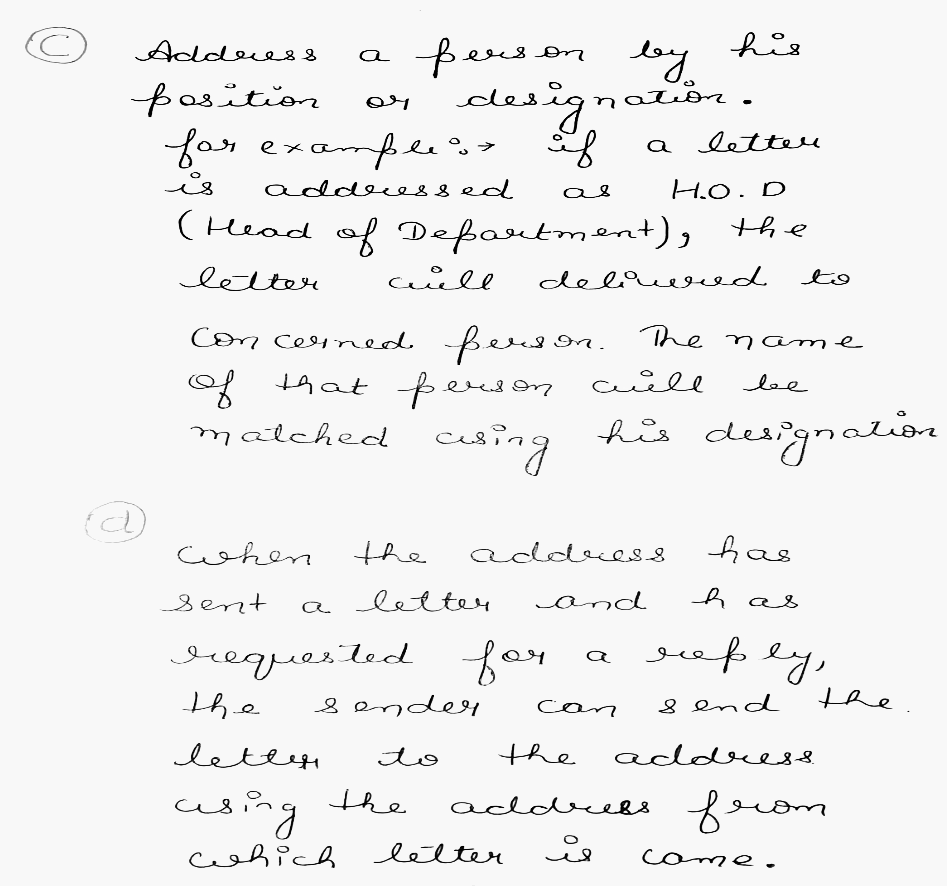 C Address a person by his
position or designation.
for example:→ if a letter
is addressed as H.O.D
(Head of Department), the
letter will delivered to
concerned person. The name
of that person will be
matched using his designation
d
when the address has
sent a letter and has
requested for a reply,
the sender can send the
letter to the address
using the address from
which letter is come.